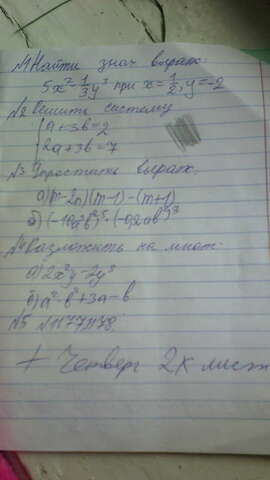 №1 Найти знач выраж:
5x² - 1/3 y³ при x = 1/2, y = -2
№2 Решить систему
{ a + 3b = 2
2a + 3b = 7
№3 Упростить выраж.
a) (m-1) - (m+1)
б)
№4 Разложить на множ.
a) 2x²y -
б) a² - b² + 3a - b
№5 №1177 1178.
+ Четверг 2х лист